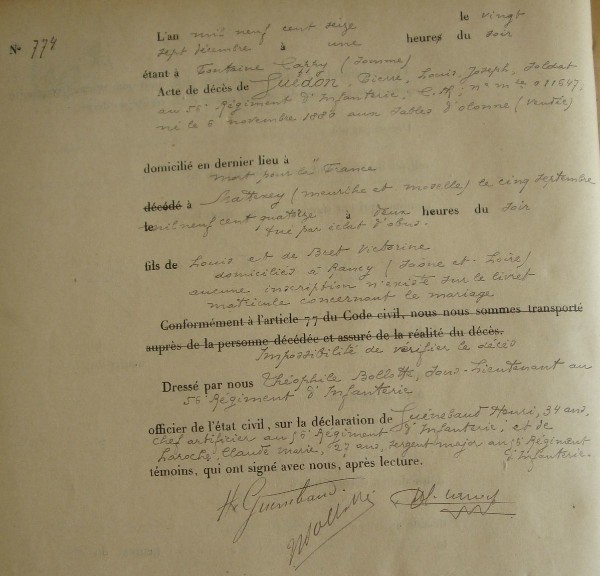 N° 774
L'an mil neuf cent seize le vingt
sept décembre à une heures du soir
étant à Fontaine Cappy (Somme)
Acte de décès de Guédon, Pierre, Louis, Joseph, Soldat
au 56e Régiment d'Infanterie, n° mle 011647,
né le 6 novembre 1886 aux Sables d'Olonne (Vendée)
domicilié en dernier lieu à
"mort pour la France"
décédé à Mattexey (Meurthe et Moselle) le cinq septembre
le mil neuf cent quatorze à deux heures du soir
tué par éclat d'obus.
fils de Louis et de Bret Victorine
domiciliés à Rancy (Saône et Loire)
aucune inscription n'existe sur le livret
matricule concernant le mariage
Conformément à l'article 77 du Code civil, nous nous sommes transporté
auprès de la personne décédée et assuré de la réalité du décès.
Impossibilité de vérifier le décès
Dressé par nous Théophile Bollotte, Sous-Lieutenant au
56e Régiment d'Infanterie
officier de l'état civil, sur la déclaration de Guénebaud Henri, 34 ans,
chef artificier au 56e Régiment d'Infanterie, et de
Claude Marie, 27 ans, sergent major au 56e Régiment
d'Infanterie.
témoins, qui ont signé avec nous, après lecture.
Hy Guenebaud
Bollotte